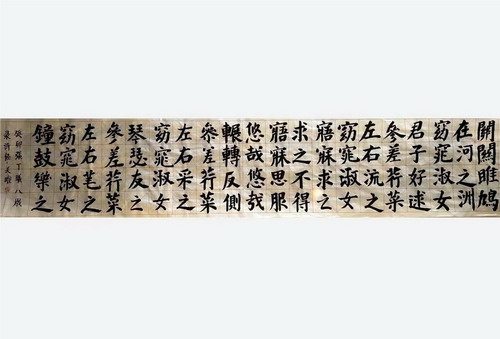 關關雎鳩
在河之洲
窈窕淑女
君子好逑
參差荇菜
左右流之
窈窕淑女
寤寐求之
求之不得
寤寐思服
悠哉悠哉
輾轉反側
參差荇菜
左右采之
窈窕淑女
琴瑟友之
參差荇菜
左右芼之
窈窕淑女
鐘鼓樂之